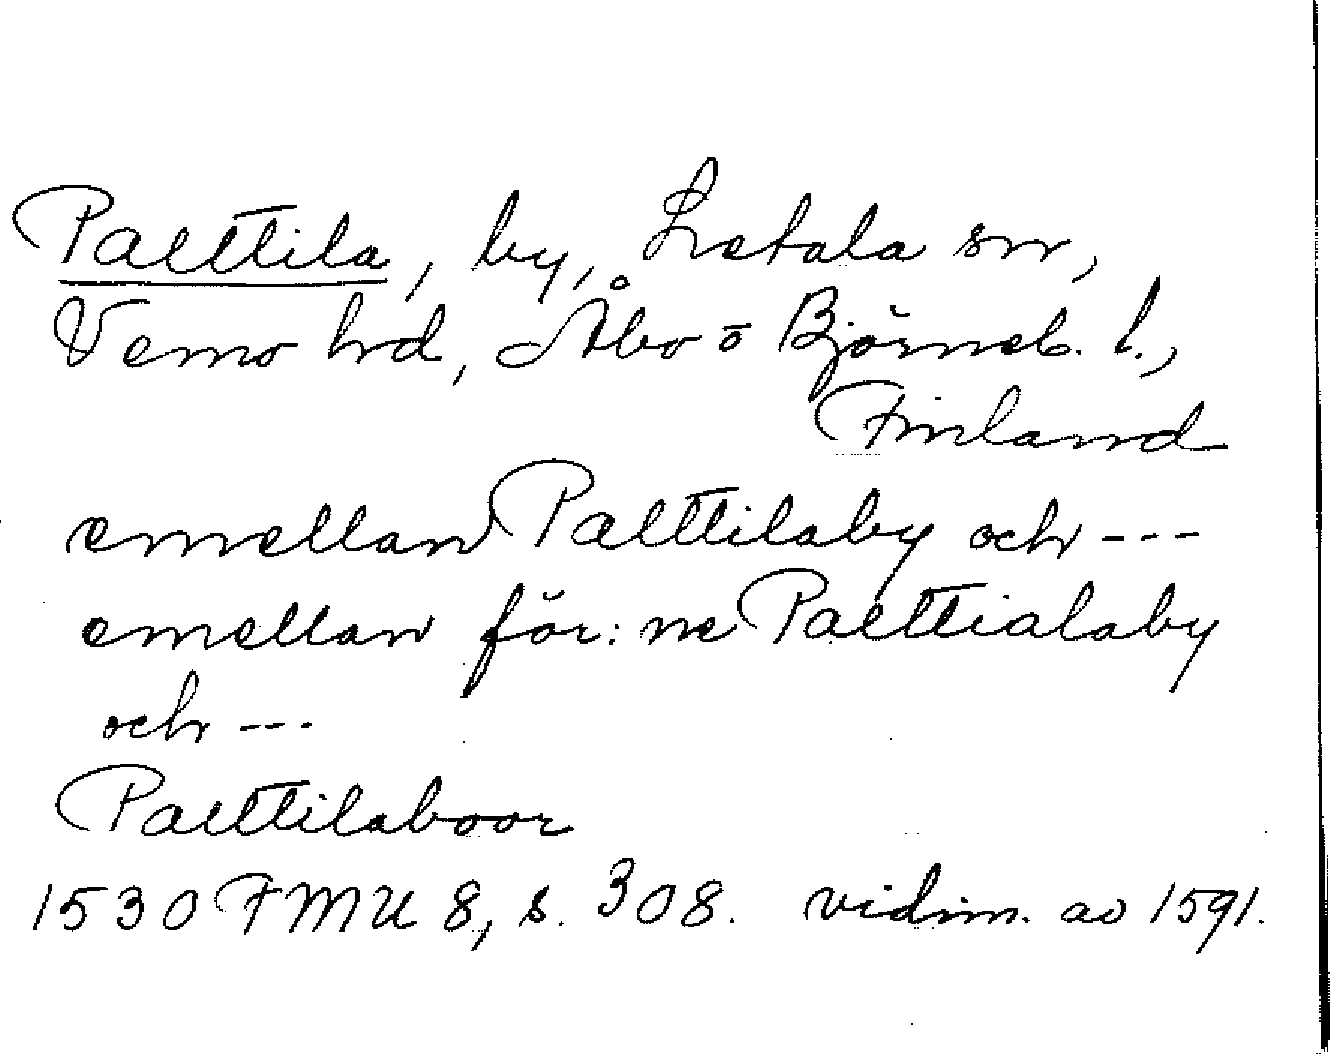 Palttila, by, Letala sn,
Vemo hd, Åbo o Björneb. l.,
Finland
emellan Palttilaby och ---
emellan för: ne Palttialaby
och ---
Palttilaboor
1530 FMU 8, s. 308. vidim. av 1591.